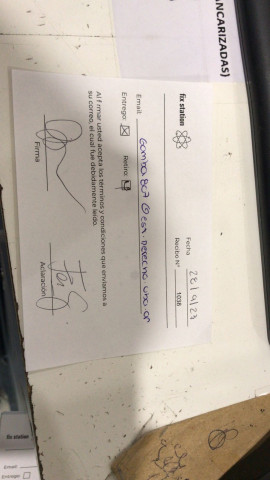 ANCARIZADAS)
fix station
Fecha 28/9/23
Recibo N° 1038
Email
Entrega: Retiro:
Al firmar usted acepta los términos y condiciones que enviamos a
su correo, el cual fue debidamente leído
Firma
Aclaración
fix station
Email
Entrega: